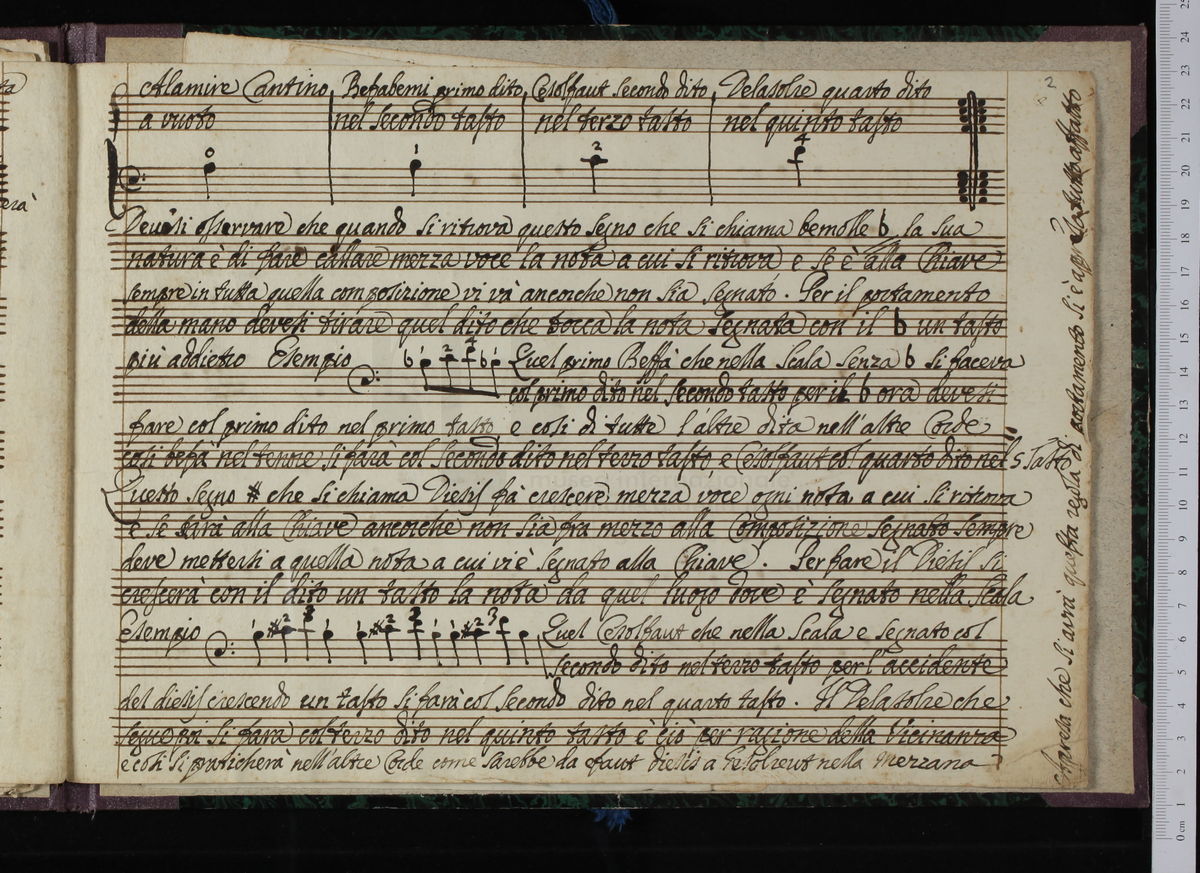 2
Alamire Cantino Befabemi primo dito Cesolfaut secondo dito Delasolre quarto dito
a vuoto nel secondo tasto nel terzo tasto nel quinto tasto
0 1 2 4
Devesi osservare che quando si ritrova questo segno che si chiama bemolle b la sua
natura è di fare callare mezza voce la nota a cui si ritrova e se è alla Chiave
sempre in tutta quella composizione vi và ancorche non sia segnato. Per il portamento
della mano devesi tirare quel dito che tocca la nota segnata con il b un tasto
più addietro Esempio b 1 2 4 b Quel primo Beffà che nella scala senza b si faceva
col primo dito nel secondo tasto per il b ora devesi
fare col primo dito nel primo tasto e così di tutte l'altre dita nell'altre Corde
così befà nel tenore si farà col secondo dito nel terzo tasto, e Cesolfaut col quarto dito nel 5 Tasto
Questo segno # che si chiama Diesis fà crescere mezza voce ogni nota a cui si ritrova
e se sarà alla Chiave ancorche non sia fra mezzo alla Composizione segnato sempre
deve mettersi a quella nota a cui vi è segnato alla Chiave. Per fare il Diesis si
crescerà con il dito un tasto la nota da quel luogo dove è segnato nella Scala
Esempio 1 # 2 3 # 2 3 # 2 3 Quel Cesolfaut che nella Scala e segnato col
secondo dito nel terzo tasto per l'accidente
del diesis crescendo un tasto si farà col secondo dito nel quarto tasto. Il Delasolre che
segue poi si farà col terzo dito nel quinto tasto è ciò per ragione della Vicinanza
e così si praticherà nell'altre Corde come sarebbe da faut diesis a Gesolreut nella Mezzana
che si avrà questa regola di portamento si è